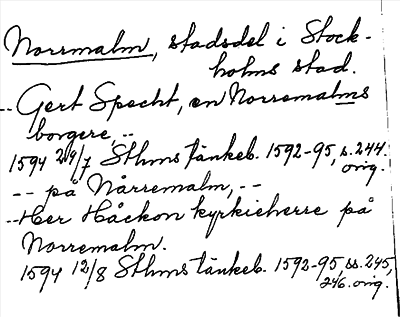 Norrmalm, stadsdel i Stock-
holms stad.
-- Gert Specht, en Norremalms
borgere, --
1594 29/7 Sthms tänkeb. 1592-95, s. 244.
orig.
-- på Nårremalm, --
-- Her Håckon kyrkieherre på
Norremalm.
1594 12/8 Sthms tänkeb. 1592-95, ss. 245,
246. orig.